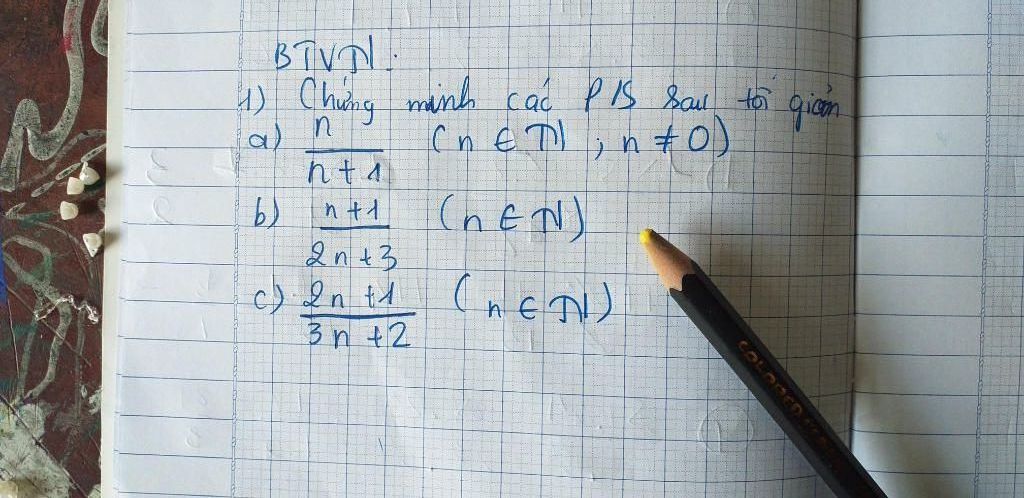 BTVN:
1) Chứng minh các P/S sau tối giản
a) n/(n+1) (n ∈ N; n ≠ 0)
b) n+1/(2n+3) (n ∈ N)
c) 2n+1/(3n+2) (n ∈ N)
COLORED